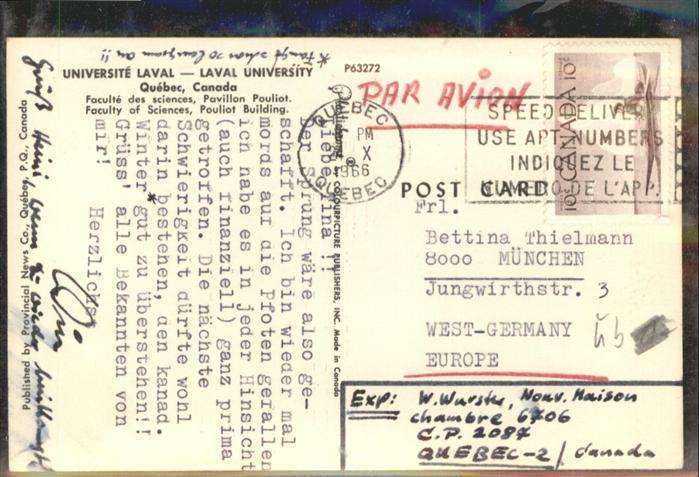 UNIVERSITÉ LAVAL — LAVAL UNIVERSITY
Québec, Canada
Faculté des sciences, Pavillon Pouliot.
Faculty of Sciences, Pouliot Building.
P63272
Liebe Tina !!
Der Sprung wäre also ge-
schafft. Ich bin wieder mal
mords auf die Pfoten gefallen
ich habe es in jeder Hinsicht
(auch finanziell) ganz prima
getroffen. Die nächste
Schwierigkeit dürfte wohl
darin bestehen, den kanad.
Winter* gut zu überstehen!!
Grüss' alle Bekannten von
mir!
Herzlichst
* fängt schon an !!
Grüß Heini, wenn er wieder
Published by Provincial News Co., Québec, P.Q., Canada
COLOURPICTURE PUBLISHERS, INC. Made in Canada
PAR AVION
QUEBEC
PM
X
1966
QUÉBEC
SPEED DELIVERY
USE APT. NUMBERS
INDIQUEZ LE
NUMERO DE L'APP.
CANADA 10¢
10¢
POST CARD
Frl.
Bettina Thielmann
8000 MÜNCHEN
Jungwirthstr. 3
WEST-GERMANY
EUROPE
Exp: W. Wurster, Nouv. Maison
chambre 6706
C.P. 2087
QUEBEC-2 / Canada